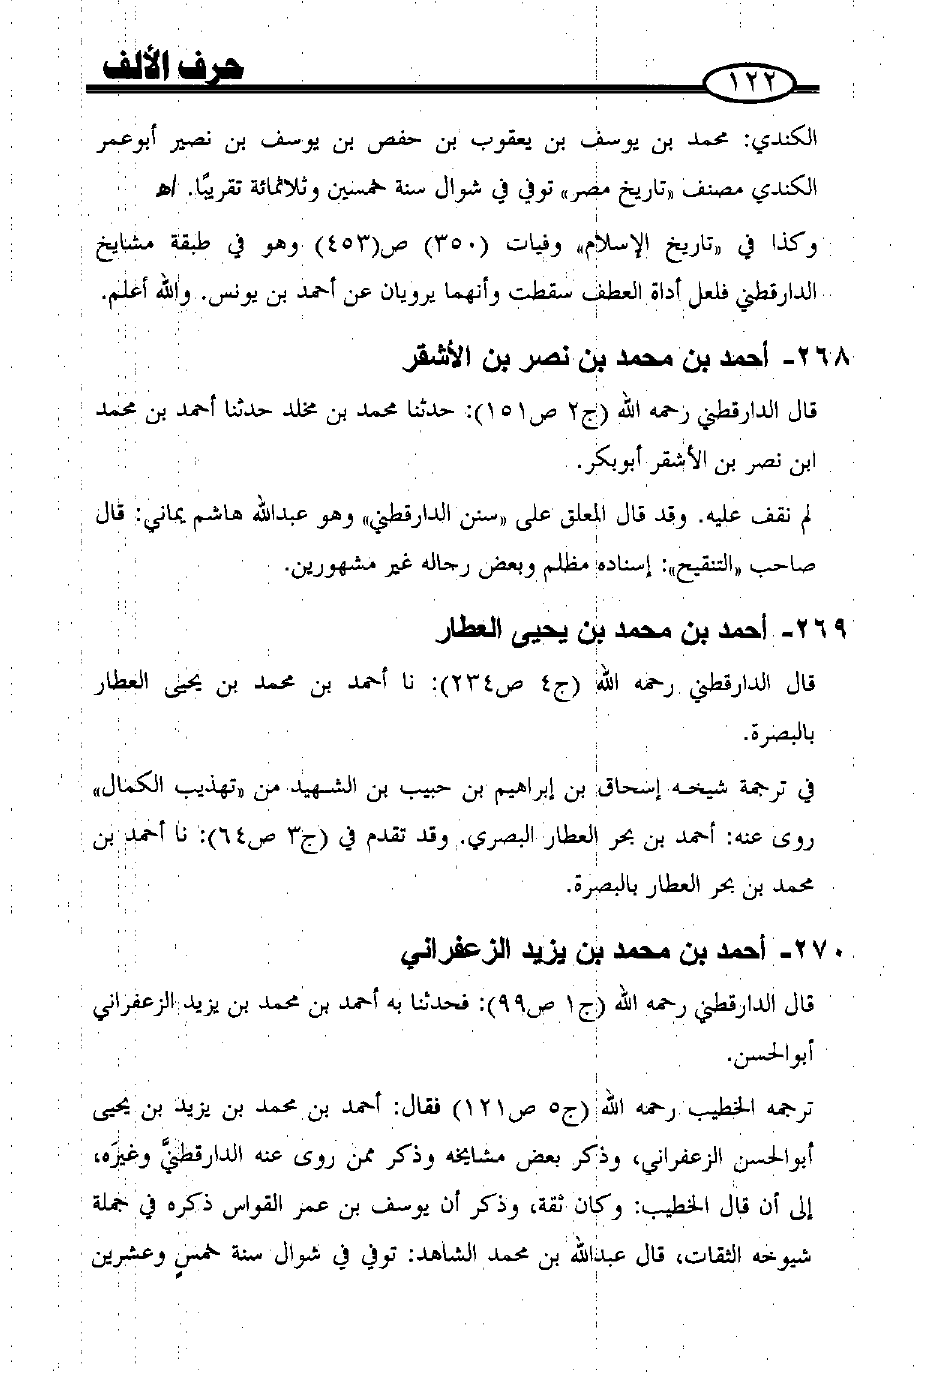 ١٢٢
حرف الألف
الكندي: محمد بن يوسف بن يعقوب بن حفص بن يوسف بن نصير أبوعمر
الكندي مصنف «تاريخ مصر» توفي في شوال سنة خمسين وثلاثمائة تقريبًا. اﻫ
وكذا في «تاريخ الإسلام» وفيات (٣٥٠) ص(٤٥٣) وهو في طبقة مشايخ
الدارقطني فلعل أداة العطف سقطت وأنهما يرويان عن أحمد بن يونس. والله أعلم.
٢٦٨- أحمد بن محمد بن نصر بن الأشقر
قال الدارقطني رحمه الله (ج٢ ص١٥١): حدثنا محمد بن مخلد حدثنا أحمد بن محمد
ابن نصر بن الأشقر أبوبكر.
لم نقف عليه. وقد قال المعلق على «سنن الدارقطني» وهو عبدالله هاشم يماني: قال
صاحب «التنقيح»: إسناده مظلم وبعض رجاله غير مشهورين.
٢٦٩- أحمد بن محمد بن يحيى العطار
قال الدارقطني رحمه الله (ج٤ ص٢٣٤): نا أحمد بن محمد بن يحيى العطار
بالبصرة.
في ترجمة شيخه إسحاق بن إبراهيم بن حبيب بن الشهيد من «تهذيب الكمال»
روى عنه: أحمد بن بحر العطار البصري. وقد تقدم في (ج٣ ص٦٤): نا أحمد بن
محمد بن بحر العطار بالبصرة.
٢٧٠- أحمد بن محمد بن يزيد الزعفراني
قال الدارقطني رحمه الله (ج١ ص٩٩): فحدثنا به أحمد بن محمد بن يزيد الزعفراني
أبوالحسن.
ترجمه الخطيب رحمه الله (ج٥ ص١٢١) فقال: أحمد بن محمد بن يزيد بن يحيى
أبوالحسن الزعفراني، وذكر بعض مشايخه وذكر ممن روى عنه الدارقطنيَّ وغيرَه،
إلى أن قال الخطيب: وكان ثقة، وذكر أن يوسف بن عمر القواس ذكره في جملة
شيوخه الثقات، قال عبدالله بن محمد الشاهد: توفي في شوال سنة خمسٍ وعشرين